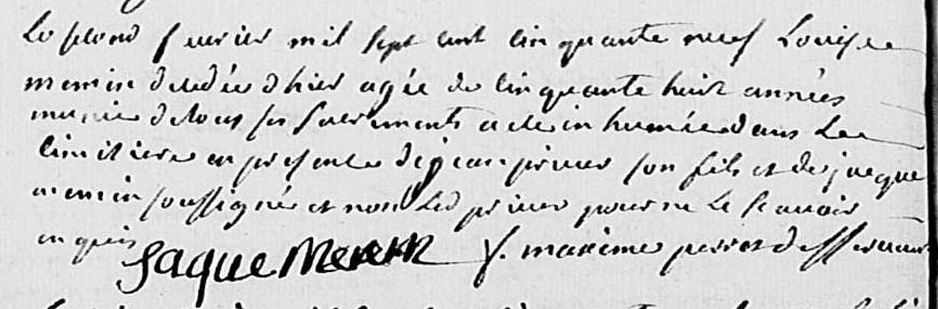 Le second fevrier mil sept cent cinquante neuf Louise
memin decedée d'hier agée de cinquante huit années
munie de tous ses sacrements a ete inhumée dans le
cimitiere en presence de jean prieur son fils et de jacque
memin soussigné et non led prieur pour ne le scavoir
enquis Jaque Memin f. maxime perrot desservant